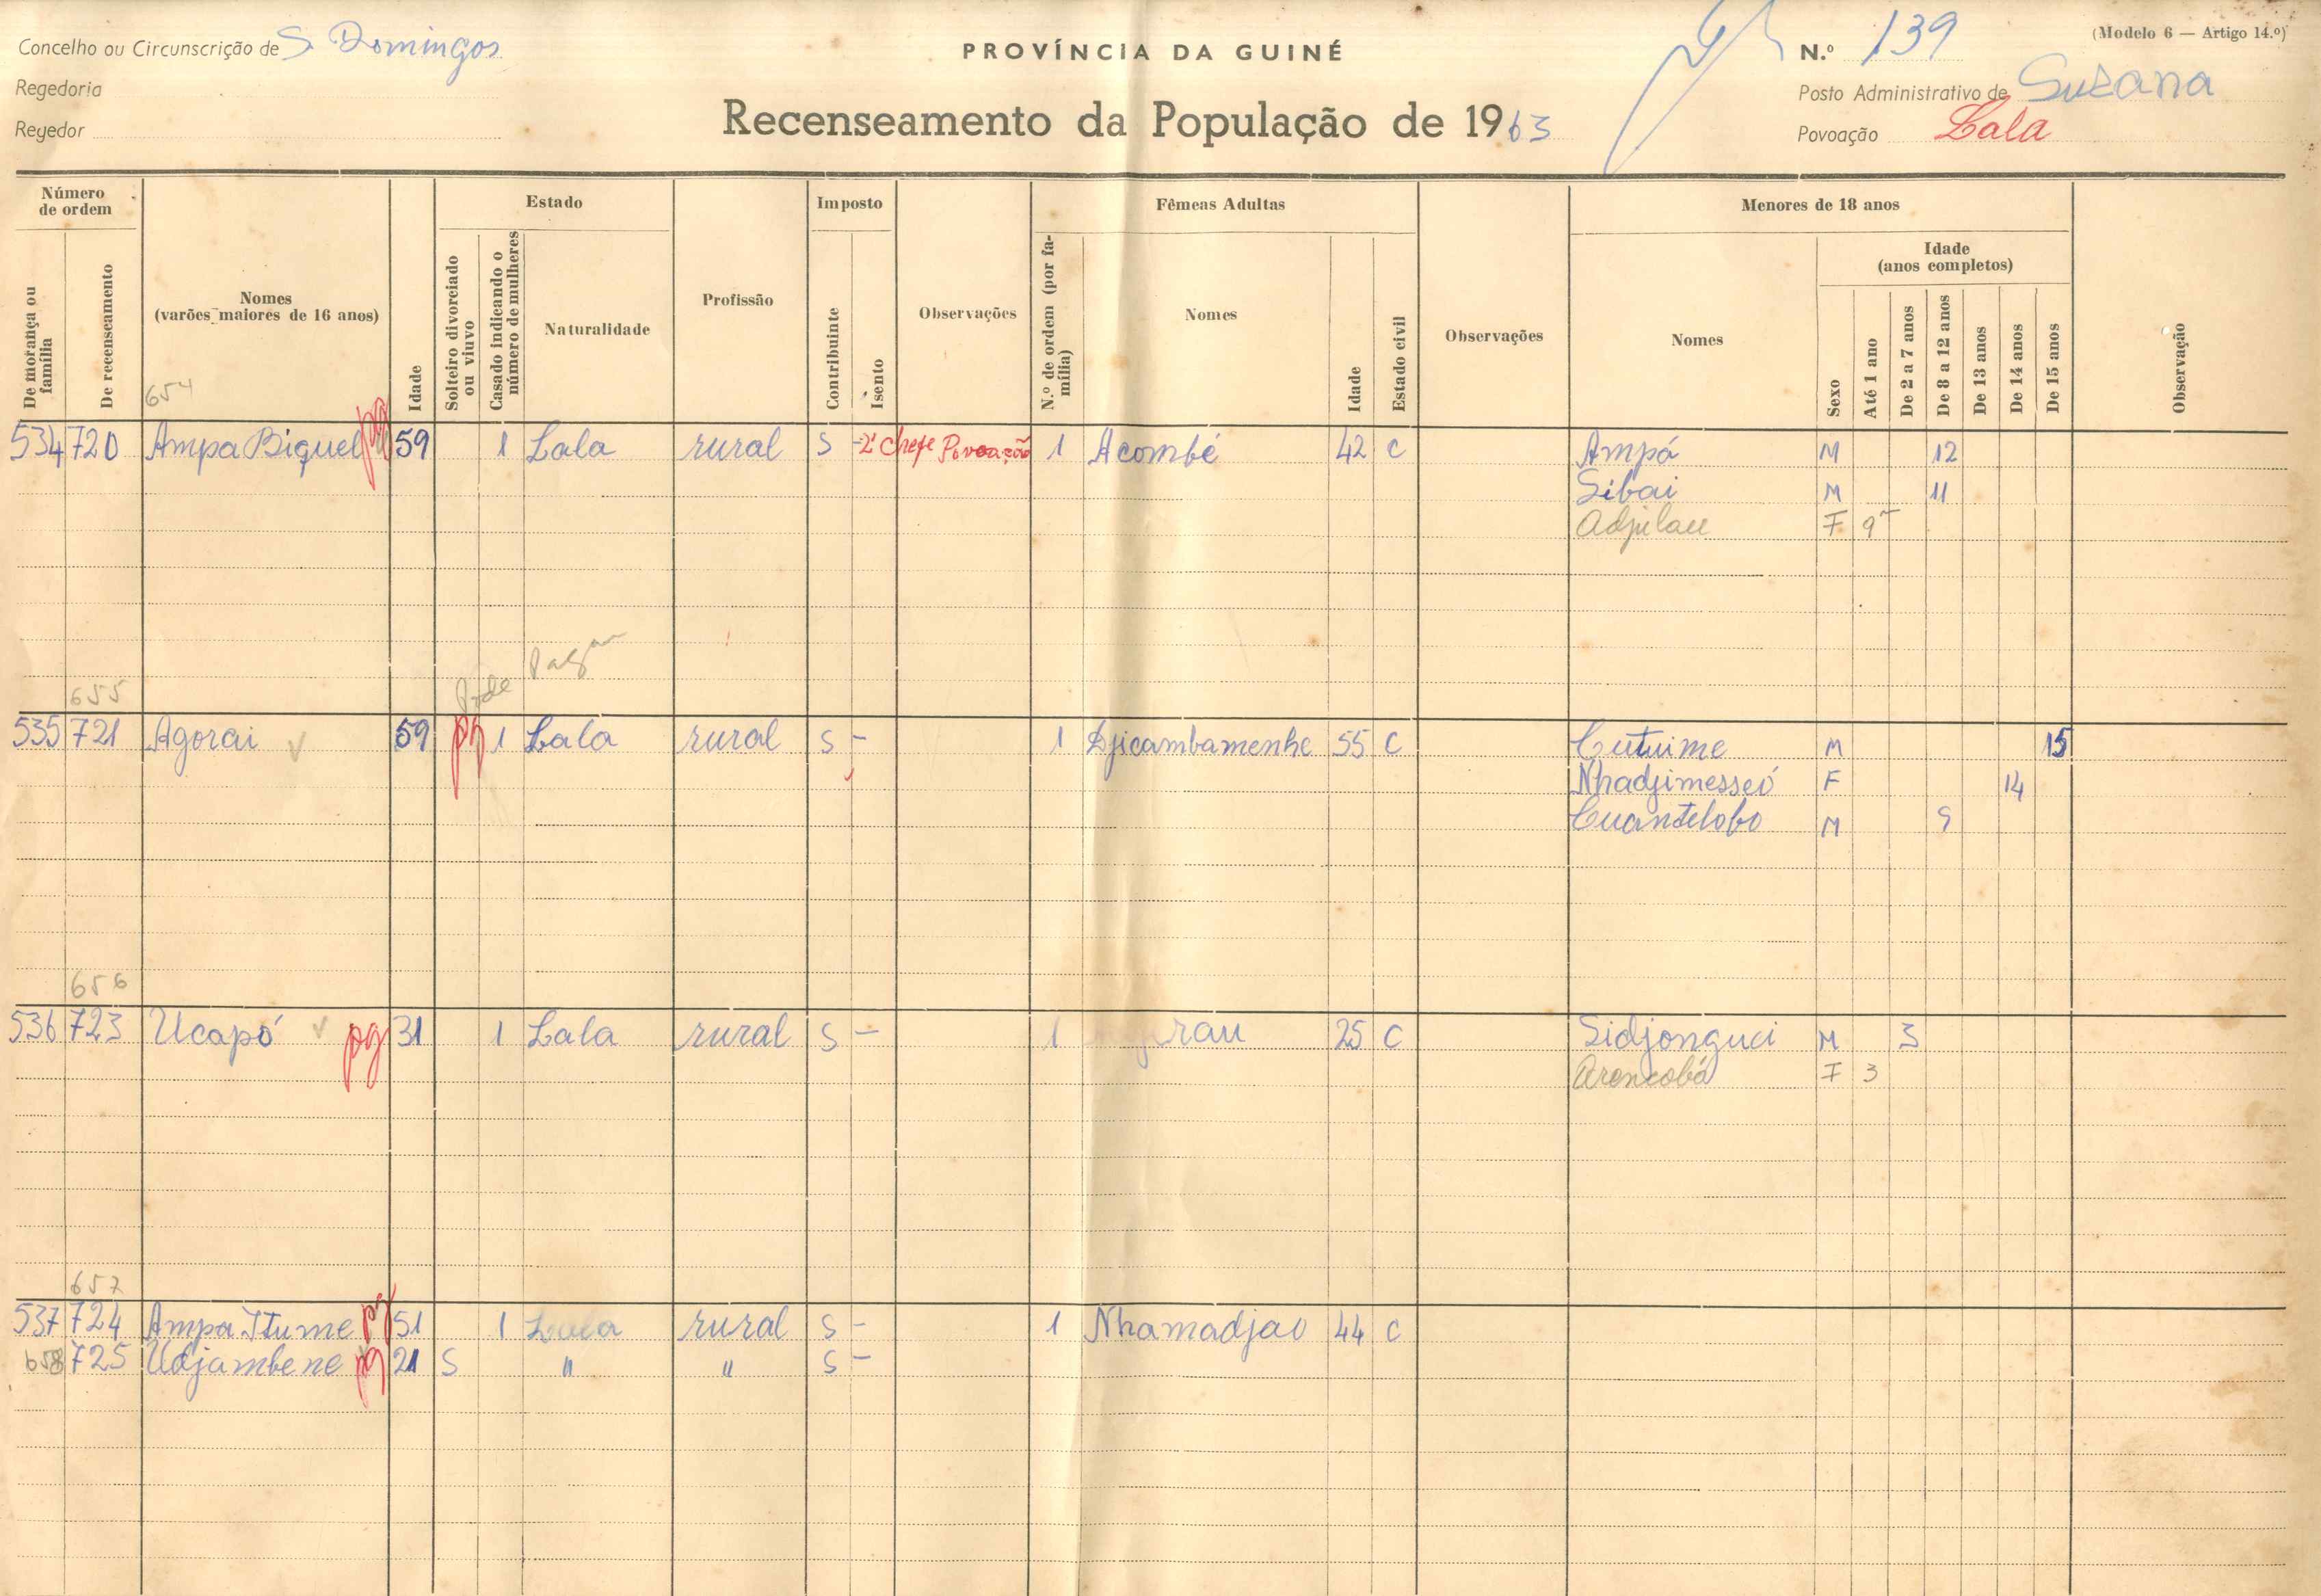 Concelho ou Circunscrição de S. Domingos
PROVÍNCIA DA GUINÉ
N.º 139
(Modelo 6 — Artigo 14.º)
Regedoria
Posto Administrativo de Suzana
Regedor
Recenseamento da População de 1963
Povoação Lala
Número de ordem
Estado
Imposto
Fêmeas Adultas
Menores de 18 anos
De morança ou família
De recenseamento
Nomes
(varões maiores de 16 anos)
Idade
Solteiro divorciado ou viuvo
Casado indicando o número de mulheres
Naturalidade
Profissão
Contribuinte
Isento
Observações
N.º de ordem (por família)
Nomes
Idade
Estado civil
Observações
Nomes
Sexo
Idade
(anos completos)
Até 1 ano
De 2 a 7 anos
De 8 a 12 anos
De 13 anos
De 14 anos
De 15 anos
Observação
654
534 720 Ampa Biquel pg 59 1 Lala rural S - 2º Chefe Povoação 1 Acombé 42 C Ampá M 12
Sibai M 11
Adjilau F 9
Pode Pagar
655
535 721 Agorai 59 pg 1 Lala rural S - 1 Djicambamenhe 55 C Cutuime M 15
Nhadjimesseó F 14
Cuantelobo M 9
656
536 723 Ucapó pg 31 1 Lala rural S - 1 rau 25 C Sidjonguci M 3
Arencobá F 3
657
537 724 Ampa Itume pg 51 1 Lala rural S - 1 Nhamadjao 44 C
658 725 Udjambene pg 21 S " " S -